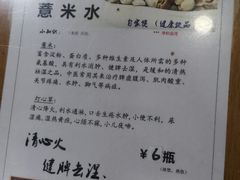 薏米水
自家煲（健康饮品）
小知识：
薏米：
富含淀粉、蛋白质、多种维生素及人体所需的多种
氨基酸，具有利水消肿、健脾去湿，是缓和的清热
祛湿之品，中医常用其来治疗脾虚腹泻、肌肉酸重、
关节疼痛、水肿、脚气等病症。
灯心草：
清心降火，利水通淋，口舌生疮水肿，小便不利，尿
湿痛，湿热黄疸，心烦不寐，小儿夜啼。
清心火
健脾去湿。
¥6瓶